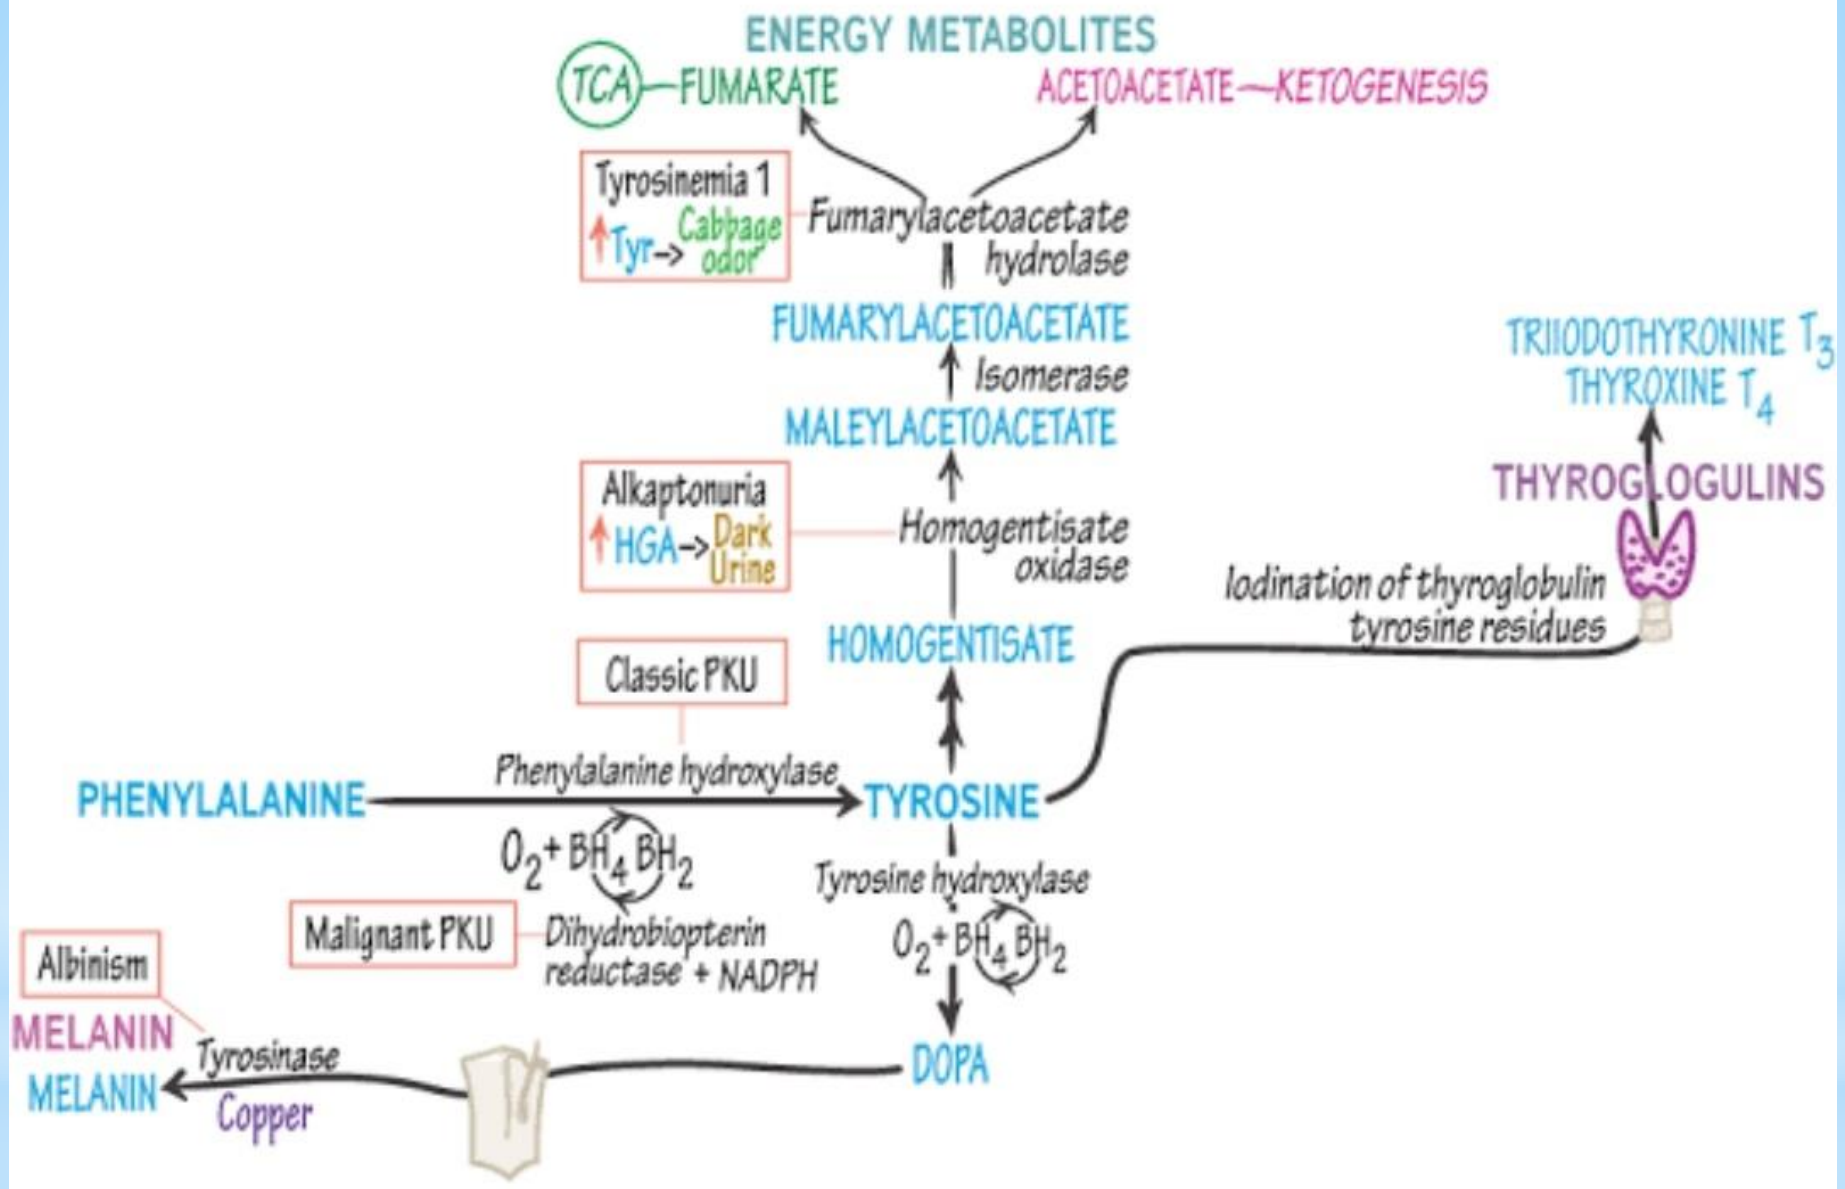 ENERGY METABOLITES
TCA FUMARATE
ACETOACETATE KETOGENESIS
Tyrosinemia 1
↑Tyr->Cabbage
odor
Fumarylacetoacetate
hydrolase
FUMARYLACETOACETATE
Isomerase
MALEYLACETOACETATE
Alkaptonuria
↑HGA->Dark
Urine
Homogentisate
oxidase
HOMOGENTISATE
TRIIODOTHYRONINE T3
THYROXINE T4
THYROGLOGULINS
Iodination of thyroglobulin
tyrosine residues
Classic PKU
Phenylalanine hydroxylase
PHENYLALANINE
TYROSINE
O2+ BH4 BH2
Malignant PKU
Dihydrobiopterin
reductase + NADPH
Tyrosine hydroxylase
O2+ BH4 BH2
DOPA
Albinism
MELANIN
Tyrosinase
MELANIN
Copper